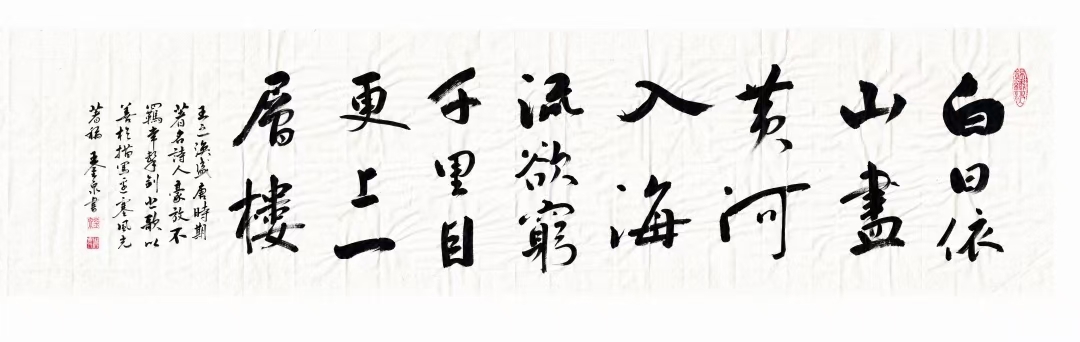 白日依
山盡
黄河
入海
流欲窮
千里目
更上一
層樓
王之渙盛唐時期
著名詩人豪放不
羈常擊劍悲歌以
善於描寫边塞風光
著稱
書